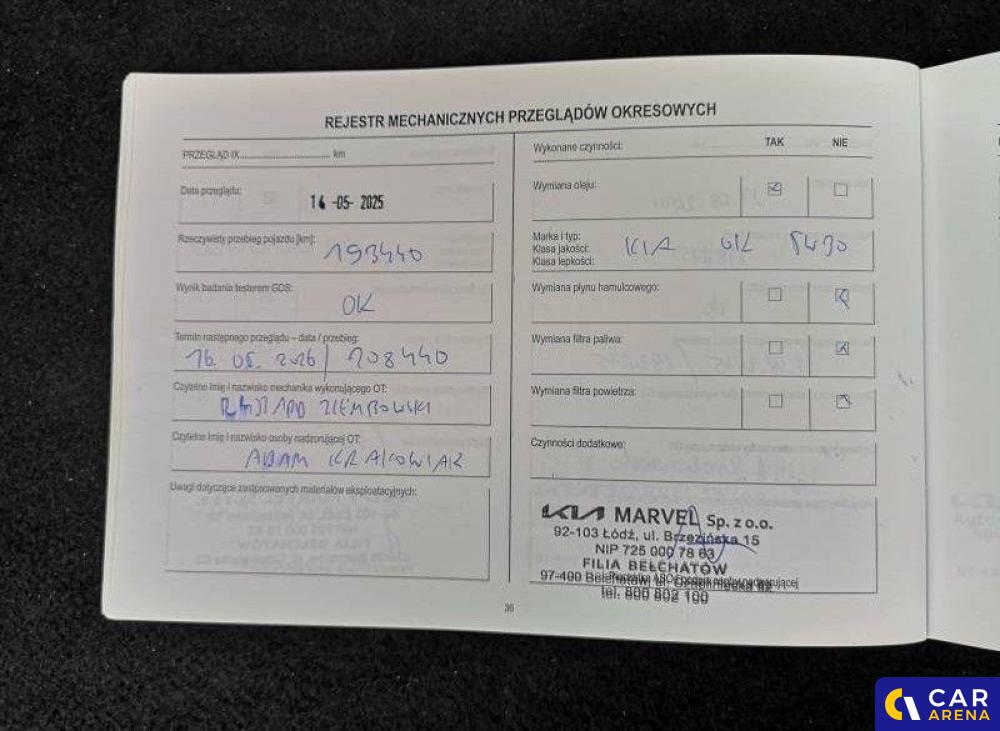 REJESTR MECHANICZNYCH PRZEGLĄDÓW OKRESOWYCH
PRZEGLĄD IX.............................. km
Data przeglądu:
14 -05- 2025
Rzeczywisty przebieg pojazdu [km]:
193440
Wynik badania testerem GDS:
OK
Termin następnego przeglądu – data / przebieg:
16. 05. 2026 / 208440
Czytelne imię i nazwisko mechanika wykonującego OT:
RYSZARD ZIEMBOWSKI
Czytelne imię i nazwisko osoby nadzorującej OT:
ADAM KRAKOWIAK
Uwagi dotyczące zastosowanych materiałów eksploatacyjnych:
Wykonane czynności: TAK NIE
Wymiana oleju:
Marka i typ:
Klasa jakości:
Klasa lepkości:
KIA OK 5W30
Wymiana płynu hamulcowego:
Wymiana filtra paliwa:
Wymiana filtra powietrza:
Czynności dodatkowe:
KIA MARVEL Sp. z o.o.
92-103 Łódź, ul. Brzezińska 15
NIP 725 000 78 63
FILIA BEŁCHATÓW
97-400 Bełchatów, ul.
Pieczątka ASO / podpis osoby nadzorującej
tel. 800 802 100
36
CAR
ARENA